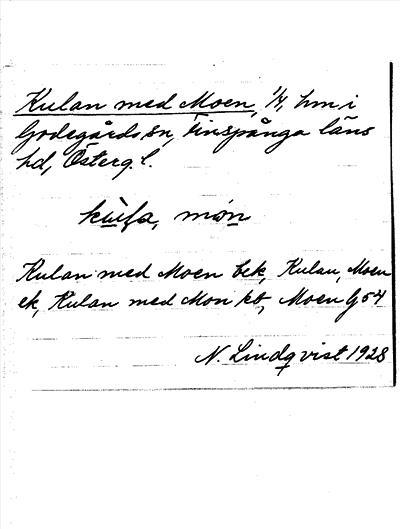 Kulan med Moen, 1/4, hm i
Godegårds sn, Finspånga läns
hd, Österg. l.
kùla, món
Kulan med Moen bek, Kulan, Moen
ek, Kulan med Mon kb, Moen G 54
N. Lindqvist 1928